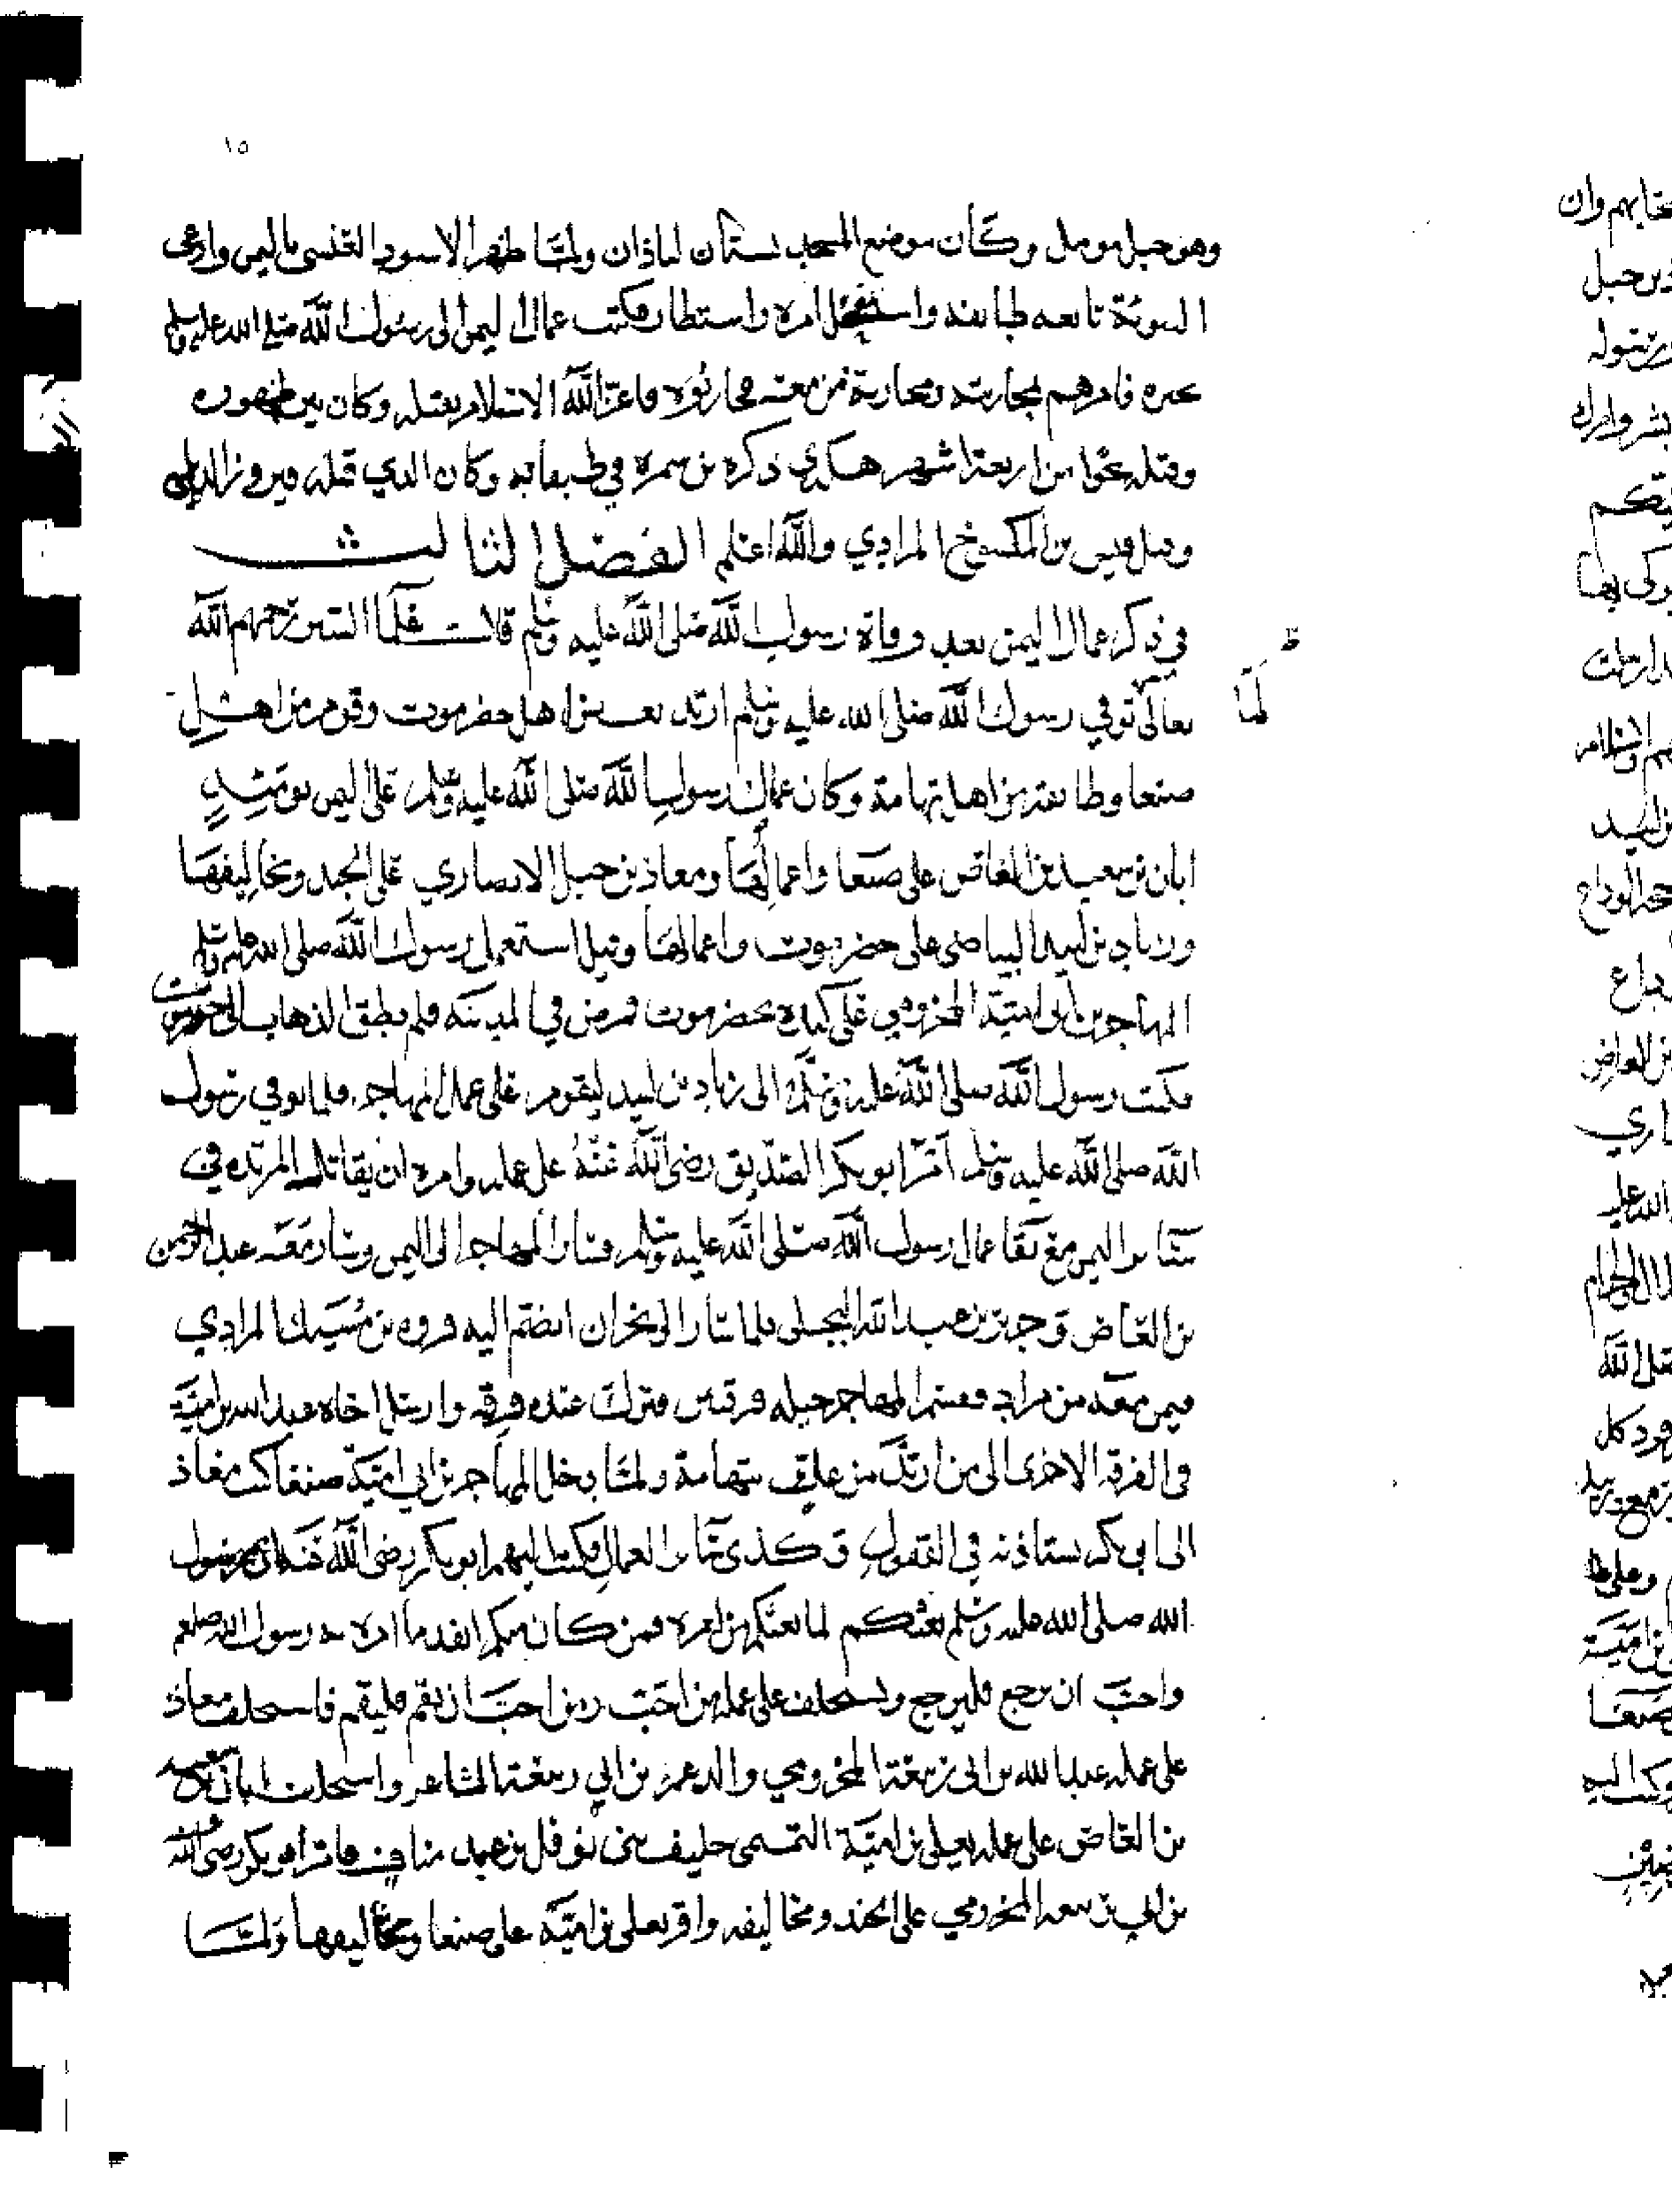 ١٥
وهو جبل مومل وكان موضع المسجد بستان لباذان ولما ظهر الاسود العنسى باليمن وادعى
النبوة تابعه طايفه واستفحل امره واستطار فكتب عمال اليمن الى رسول الله صلى الله عليه وسلم
خبره فامرهم بمحاربته ومحاربة من معه فحاربوه فاعز الله الاسلام بقتله وكان بين ظهوره
وقتله نحوا من اربعة اشهر هكذى ذكره بن سمرة في طبقاته وكان الذي قتله فيروز الديلمى
وقيل قيس بن المكسوح المرادي والله اعلم الفصل الثالث
في ذكر عمال اليمن بعد وفاة رسول الله صلى الله عليه وسلم قالت علما السير رحمهم الله
لما
تعالى توفي رسول الله صلى الله عليه وسلم ارتد بعض اهل حضرموت وقوم من اهل
صنعا وطايفة من اهل تهامة وكان عمال رسول الله صلى الله عليه وسلم على اليمن يومئذٍ
ابان بن سعيد بن العاص على صنعا واعمالها ومعاذ بن جبل الانصاري على الجند ومخاليفها
وزياد بن لبيد البياضى على حضرموت واعمالها وقيل استعمل رسول الله صلى الله عليه وسلم
المهاجر بن ابى امية المخزومي على كنده بحضرموت فمرض في المدينه فلم يطق الذهاب الى حضرموت
فكتب رسول الله صلى الله عليه وسلم الى زياد بن لبيد ليقوم على عمال المهاجر فلما توفي رسول
الله صلى الله عليه وسلم اقر ابو بكر الصديق رضى الله عنه على عمله وامره ان يقاتل المرتده في
ساير اليمن مع بقا عمال رسول الله صلى الله عليه وسلم فسار المهاجر الى اليمن وسار معه عبد الرحمن
بن العاص وجرير بن عبد الله البجلى فلما سار الى نجران انضم اليه فروه بن مسيك المرادي
فيمن معه من مراد فقسم المهاجر خيله فرقتين فترك عنده فرقه وارسل اخاه عبد الله بن امية
في الفرقه الاخرى الى من ارتد من عك بتهامة ولما دخل المهاجر بن ابي امية صنعا كتب معاذ
الى ابي بكر يستاذنه في القفول وكذى ساير العمال فكتب اليهم ابو بكر رضى الله عنه ان رسول
الله صلى الله عليه وسلم بعثكم لما بعثكم من امره فمن كان منكم انفد ما امره به رسول الله صلعم
واحب ان يرجع فليرجع وليستخلف على عمله من احب ومن احب ان يقم فليقم فاستخلف معاذ
على عمله عبد الله بن ابى ربيعة المخزومي والد عمر بن ابي ربيعة الشاعر واستخلف ابان بن سعيد
بن العاص على عمله يعلى بن امية التميمى حليف بنى نوفل بن عبد مناف فاقر ابو بكر رضى الله عنه
بن ابي ربيعه المخزومي على الجند ومخاليفه واقر يعلى بن امية على صنعا ومخاليفها ولما